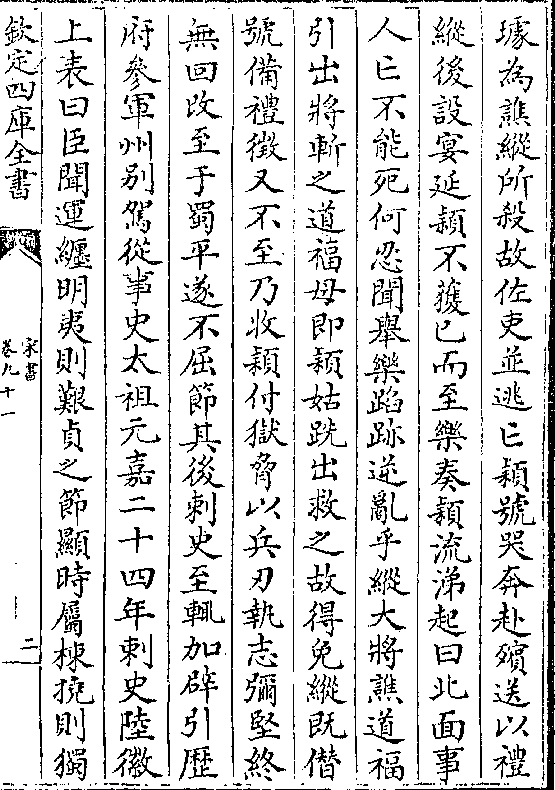 璩為譙縱所殺故佐吏並逃亡頴號哭奔赴殯送以禮
縱後設宴延頴不獲已而至樂奏頴流涕起曰北面事
人亡不能死何忍聞舉樂蹈跡逆亂乎縱大將譙道福
引出將斬之道福母即頴姑跣出救之故得免縱既僣
號備禮徵又不至乃收頴付獄脅以兵刃執志彌堅終
無回改至于蜀平遂不屈節其後刺史至輒加辟引歴
府參軍州别駕從事史太祖元嘉二十四年刺史陸徽
上表曰臣聞運纒明夷則艱貞之節顯時屬棟撓則獨
欽定四庫全書
宋書
卷九十一
二